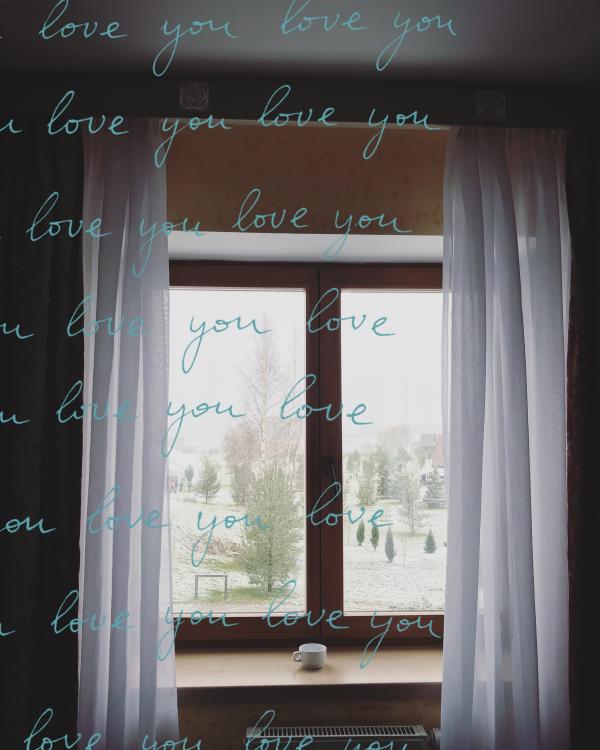 love you love you
u love you love you
love you love you
ou love you love
u love you love
ou love you love
love you love you
love you love you